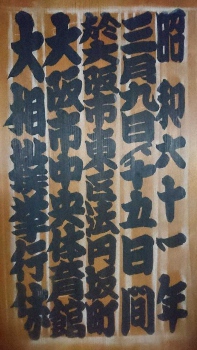 昭和六十一年
三月九日ヨリ十五日間
於大阪市東区法円坂町
大阪市中央体育館
大相撲挙行